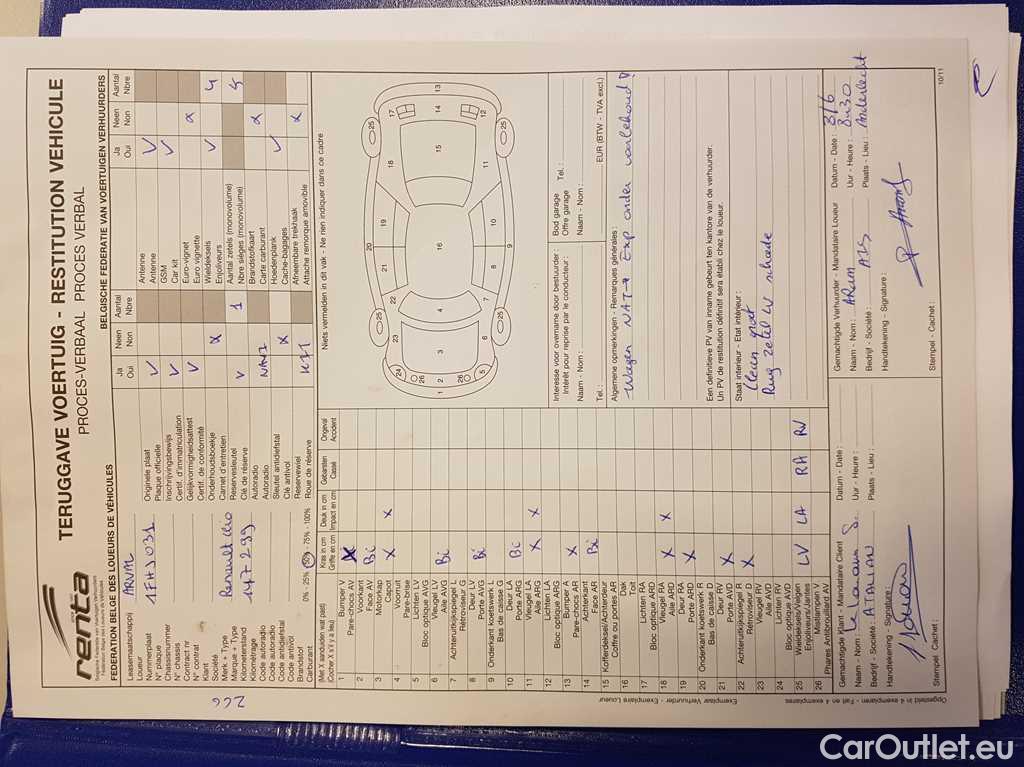 renta
Belgische Federatie van Voertuigen Verhuurders
Fédération Belge des Loueurs de Véhicules
TERUGGAVE VOERTUIG - RESTITUTION VEHICULE
PROCES-VERBAAL PROCES VERBAL
FEDERATION BELGE DES LOUEURS DE VÉHICULES
BELGISCHE FEDERATIE VAN VOERTUIGEN VERHUURDERS
266
Leasemaatschappij
Loueur
ARVAL
Nummerplaat
N° plaque
1FHJ031
Chassisnummer
N° chassis
Contract nr
N° contrat
Klant
Société
Merk + Type
Marque + Type
Renault Clio
Kilometerstand
Kilométrage
147299
Code autoradio
Code autoradio
Code antidiefstal
Code antivol
Brandstof
Carburant
0% - 25% - 50% - 75% - 100%
Ja
Oui
Neen
Non
Aantal
Nbre
Originele plaat
Plaque officielle
V
Inschrijvingsbewijs
Certif. d'immatriculation
V
Gelijkvormigheidsattest
Certif. de conformité
V
Onderhoudsboekje
Carnet d'entretien
X
Reservesleutel
Clé de réserve
V 1
Autoradio
Autoradio
NAVI
Sleutel antidiefstal
Clé antivol
X
Reservewiel
Roue de réserve
Ja
Oui
Neen
Non
Aantal
Nbre
Antenne
Antenne
V
GSM
Car kit
V
Euro-vignet
Euro vignette
Wieldeksels
Enjoliveurs
V 4
Aantal zetels (monovolume)
Nbre sièges (monovolume)
5
Brandstofkaart
Carte carburant
Hoedenplank
Cache-bagages
V
Afneembare trekhaak
Attache remorque amovible
(Met X aanduiden wat past)
(Cocher X s'il y a lieu)
Kras in cm
Griffe en cm
Deuk in cm
Impact en cm
Gebarsten
Cassé
Ongeval
Accident
1 Bumper V
Pare-chocs AV
X
2 Voorkant
Face AV
Bi
3 Motorkap
Capot
X X
4 Voorruit
Pare-brise
5 Lichten LV
Bloc optique AVG
6 Vleugel LV
Aile AVG
Bi
7 Achteruitkijkspiegel L
Rétroviseur G
8 Deur LV
Porte AVG
Bi
9 Onderkant koetswerk L
Bas de caisse G
10 Deur LA
Porte ARG
Bi
11 Vleugel LA
Aile ARG
X X
12 Lichten LA
Bloc optique ARG
13 Bumper A
Pare-chocs AR
X
14 Achterkant
Face AR
Bi
15 Kofferdeksel/Achterdeur
Coffre ou portes AR
16 Dak
Toit
17 Lichten RA
Bloc optique ARD
18 Vleugel RA
Aile ARD
X X
19 Deur RA
Porte ARD
X
20 Onderkant koetswerk R
Bas de caisse D
21 Deur RV
Porte AVD
X
22 Achteruitkijkspiegel R
Rétroviseur D
X
23 Vleugel RV
Aile AVD
24 Lichten RV
Bloc optique AVD
25 Wieldeksels/Velgen
Enjoliveurs/Jantes
LV LA RA RV
26 Mistlampen V
Phares Antibrouillard AV
Niets vermelden in dit vak : Ne rien indiquer dans ce cadre
1 2 3 4 5 6 7 8 9 10 11 12 13 14 15 16 17 18 19 20 21 22 23 24 25 25 25 25 26 26
Interesse voor overname door bestuurder :
Intérêt pour reprise par le conducteur :
Naam - Nom :
Tel. :
Bod garage
Offre garage
Tel. :
Naam - Nom :
EUR (BTW - TVA excl.)
Algemene opmerkingen - Remarques générales :
Wagen NAT → Exp onder voorbehoud !
Een definitieve PV van inname gebeurt ten kantore van de verhuurder.
Un PV de restitution définitif sera établi chez le loueur.
Staat interieur - Etat intérieur :
Clean groot
Rug zetel LV schade
Gemachtigde Klant - Mandataire Client
Datum - Date :
Naam - Nom :
Uur - Heure :
Bedrijf - Société : ATALIAN
Plaats - Lieu :
Handtekening - Signature :
Stempel - Cachet :
Gemachtigde Verhuurder - Mandataire Loueur
Datum - Date : 8/6
Naam - Nom : ARAM
Uur - Heure : 8u30
Bedrijf - Société :
Plaats - Lieu : Anderlecht
Handtekening - Signature :
Stempel - Cachet :
Exemplaar Verhuurder - Exemplaire Loueur
Opgesteld in 4 exemplaren - Fait en 4 exemplaires
10/11
CarOutlet.eu